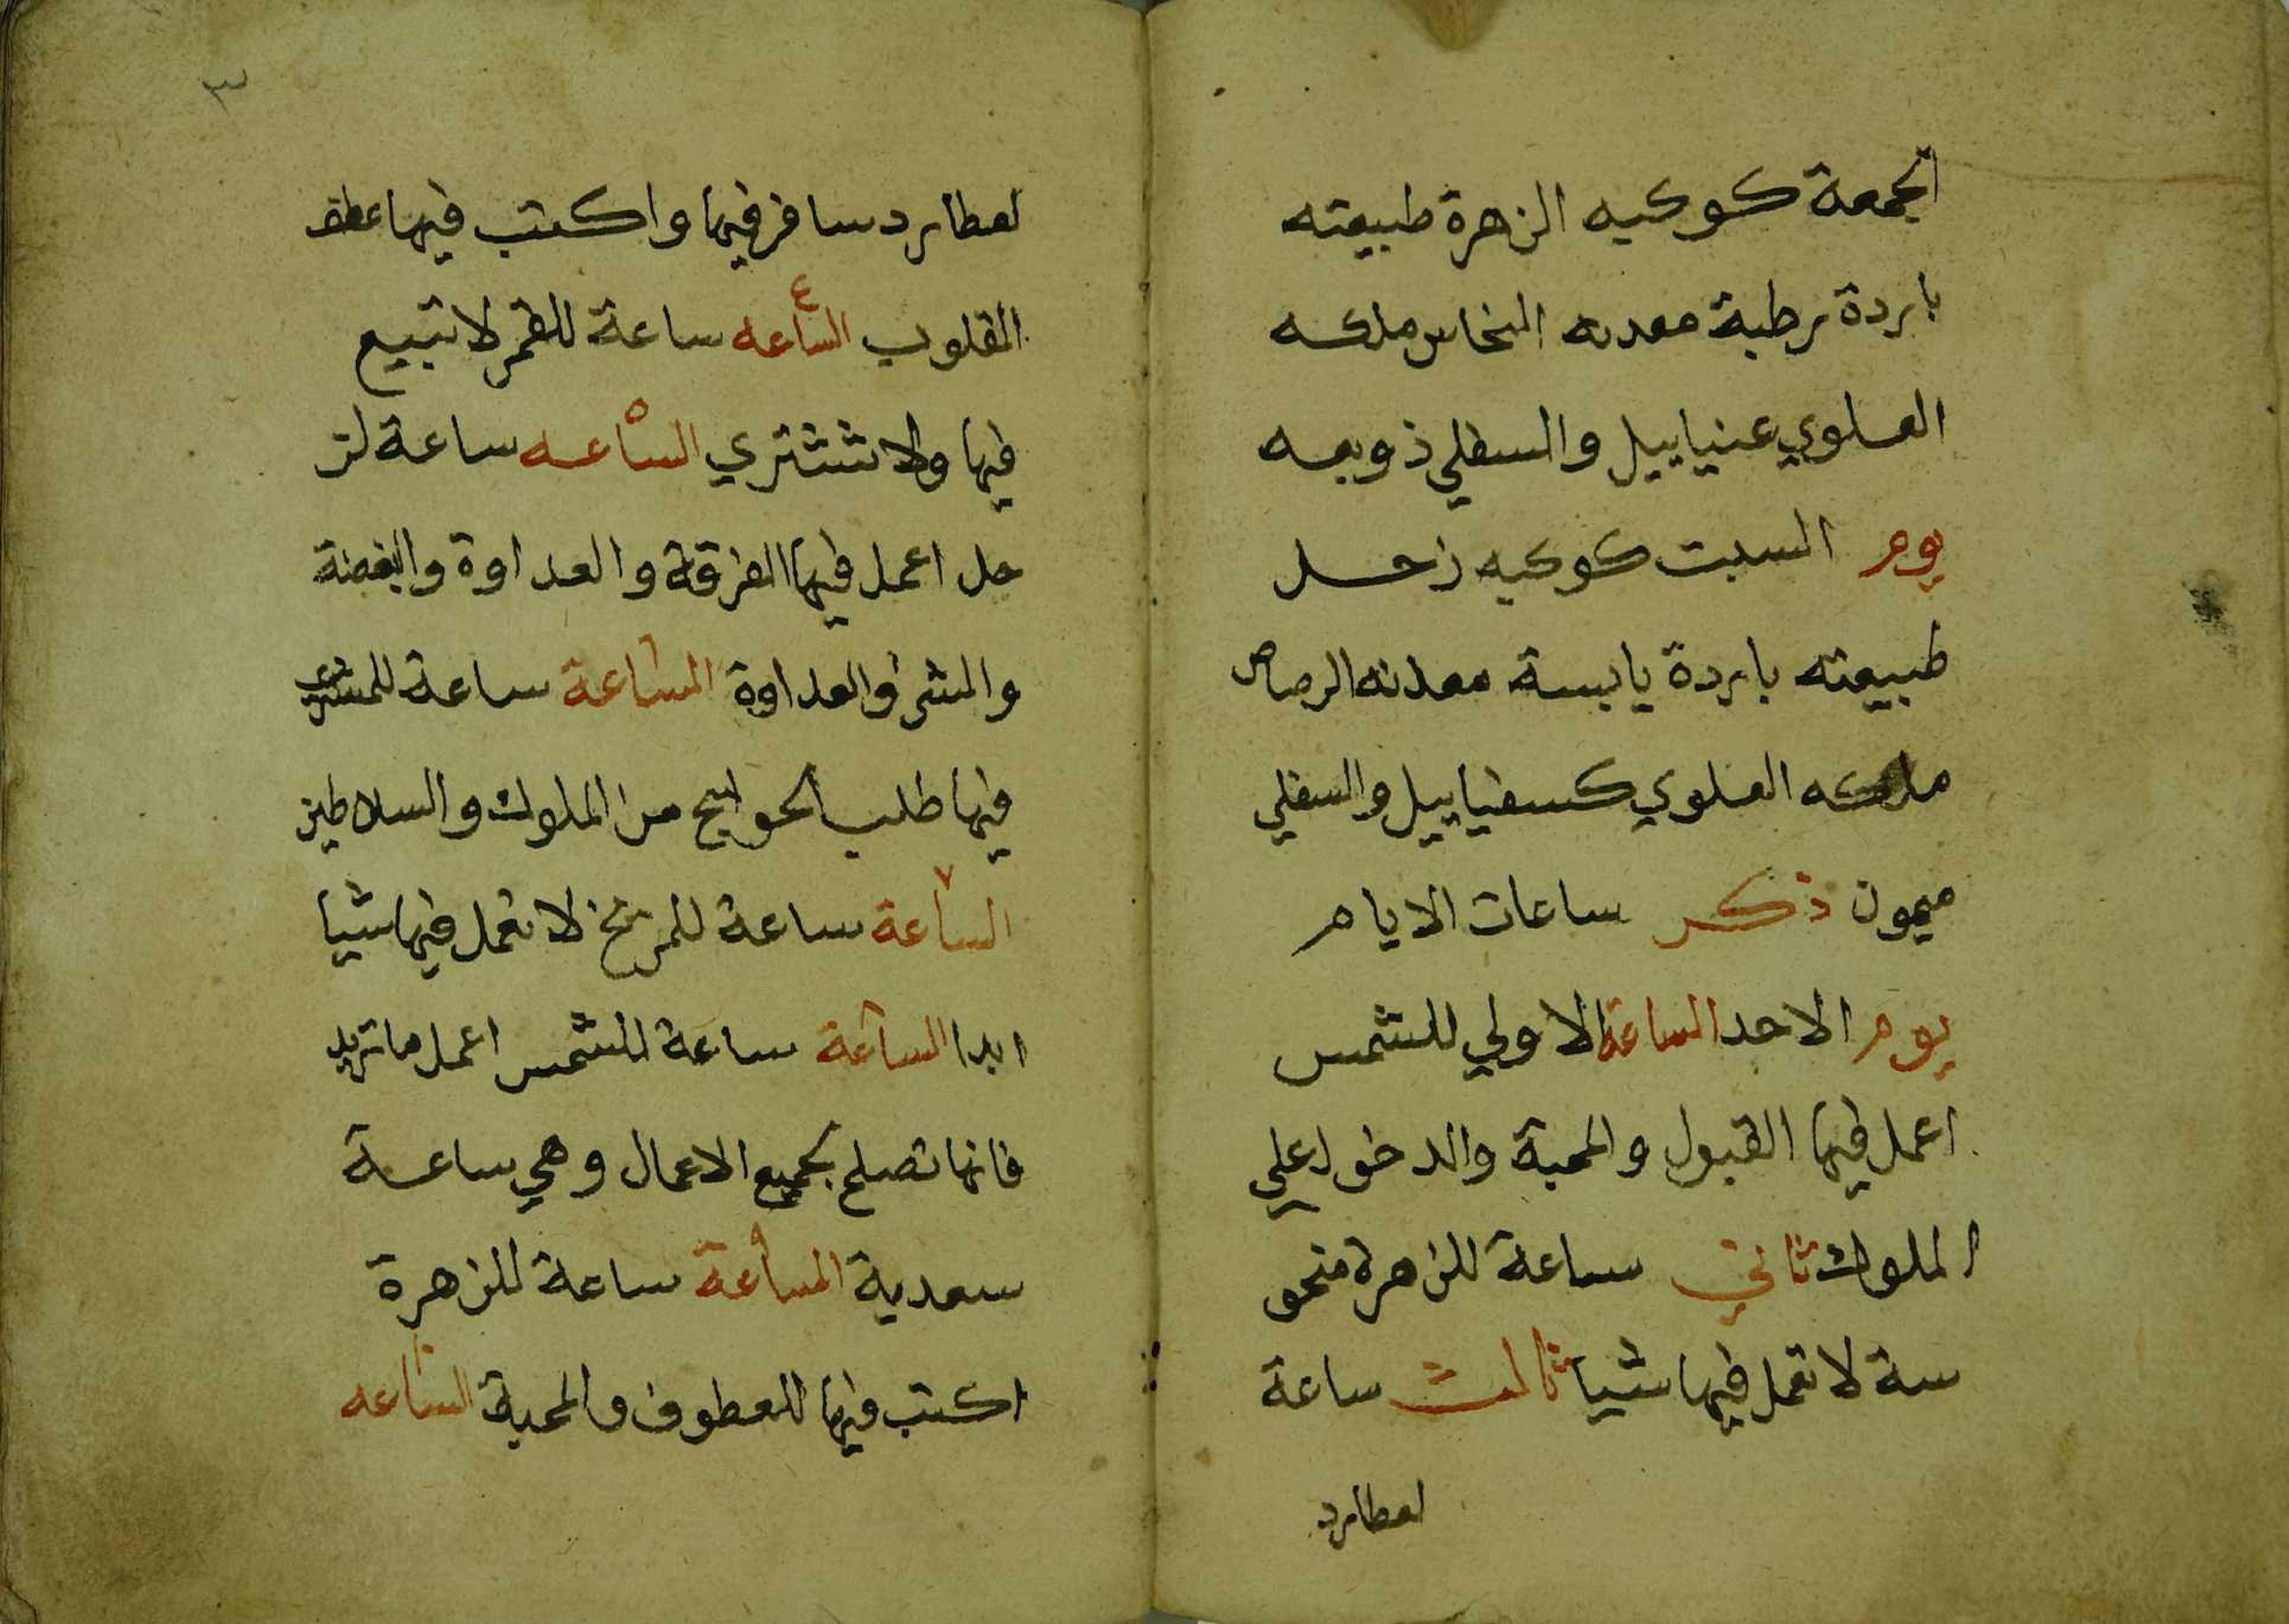 الجمعة كوكبه الزهرة طبيعته
باردة رطبة معدنه النحاس ملكه
العلوي عنياييل والسفلي ذوبعه
يوم السبت كوكبه زحل
طبيعته باردة يابسة معدنه الرصاص
ملكه العلوي كسفياييل والسفلي
ميمون ذكر ساعات الايام
يوم الاحد الساعة الاولي للشمس
اعمل فيها القبول والمحبة والدخول علي
الملوك ثاني ساعة للزهرة منحو
سة لا تعمل فيها شيا ثالث ساعة
لعطارد
٣
لعطارد سافر فيها واكتب فيها عطف
القلوب الساعه ٤ ساعة للقمر لا تبيع
فيها ولا تشتري الساعه ٥ ساعة لز
حل اعمل فيها الفرقة والعداوة والبغضة
والشر والعداوة الساعة ٦ ساعة للمشتري
فيها طلب الحوايج من الملوك والسلاطين
الساعة ٧ ساعة للمريخ لا تعمل فيها شيا
ابدا الساعة ٨ ساعة للشمس اعمل ما تريد
فانها تصلح لجميع الاعمال وهي ساعة
سعدية الساعة ٩ ساعة للزهرة
اكتب فيها للعطوف والمحبة الساعه ١٠